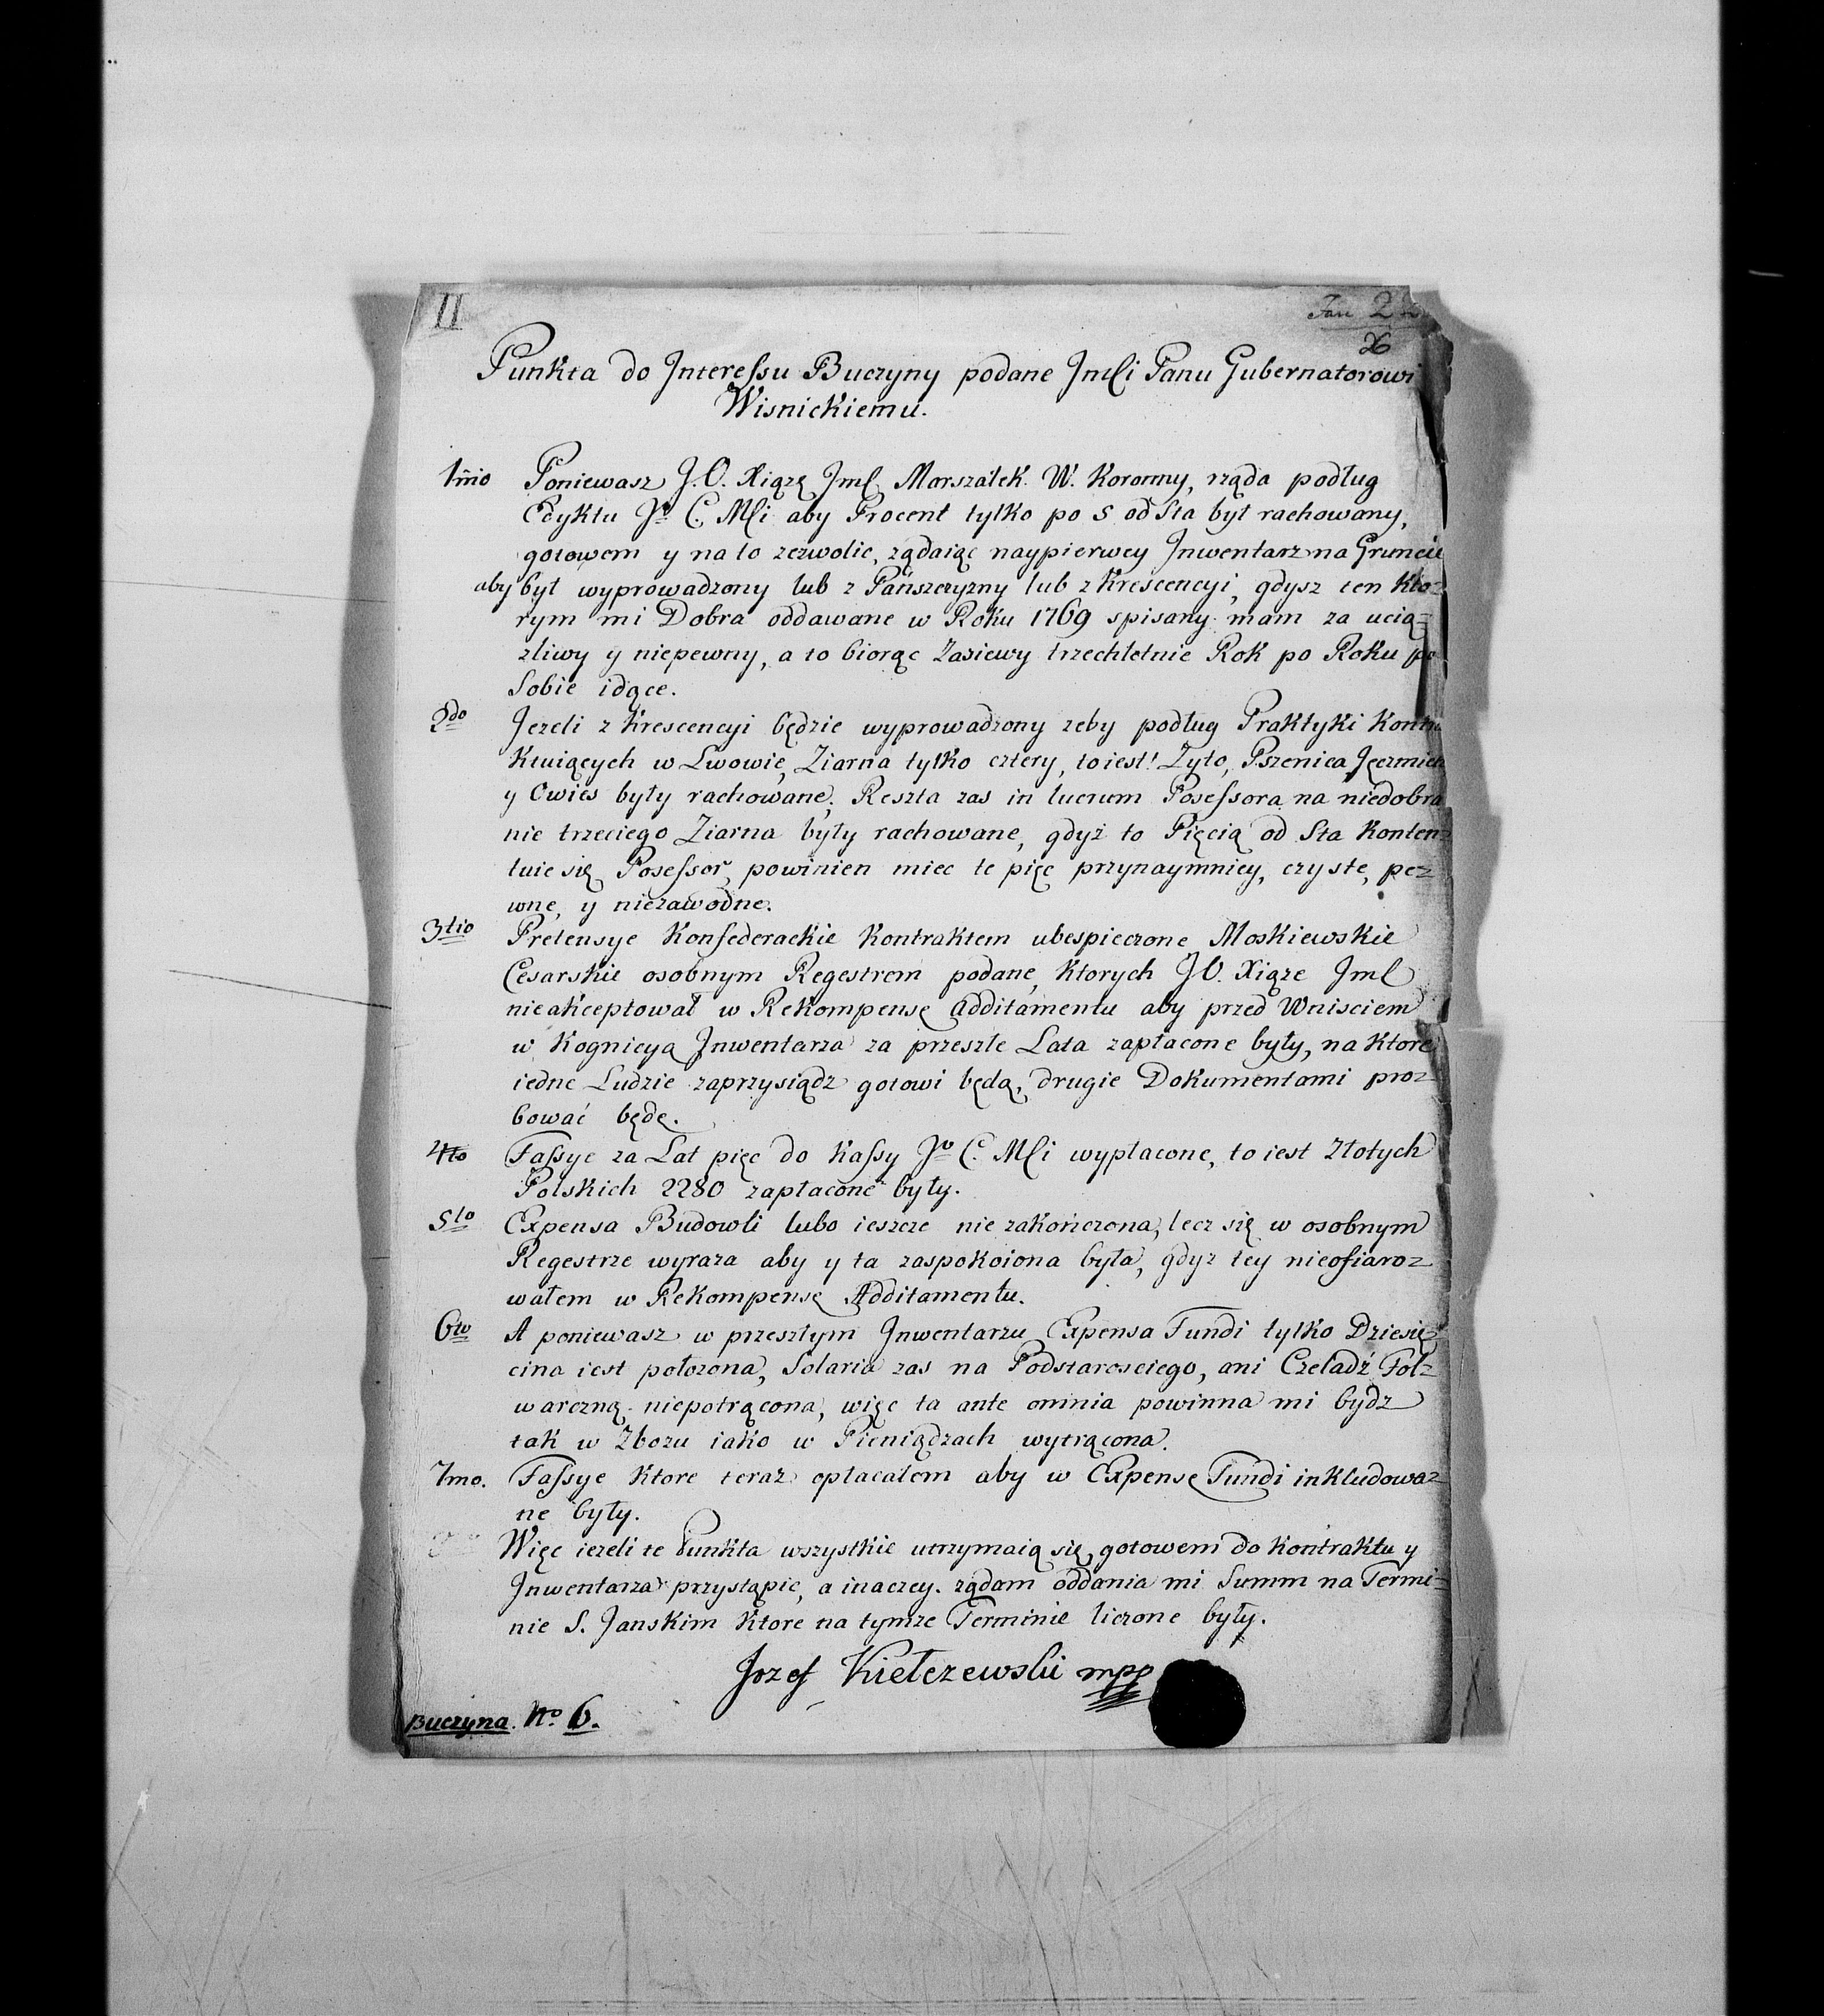 II
Punkta do Interessu Buczyny podane Jmći Panu Gubernatorowi
Wisnickiemu.
1mo Poniewasz J. O. Xiąże Jmć Marszałek W. Koronny, rząda podług
Edyktu Jo C. Mći aby Procent tylko po 5 od Sta był rachowany,
gotowem y na to zezwolic, ządaiąc naypierwey Inwentarz na Gruncie
aby był wyprowadzony lub z Pańszczyzny lub z Krescencyi, gdysz ten kto=
rym mi Dobra oddawane w Roku 1769 spisany mam za ucią=
zliwy y niepewny, a to biorąc Zasiewy trzechletnie Rok po Roku po
Sobie idące.
2do Jezeli z Krescencyi będzie wyprowadzony zeby podług Praktyki Kontra
ktuiących w Lwowie, Ziarna tylko cztery, to iest! Zyto, Pszenica Jęczmień
y Owies były rachowane; Reszta zas in lucrum Posessora na niedobra
nie trzeciego Ziarna były rachowane, gdyż to Pięcią od Sta konten=
tuie się Posessor, powinien miec te pięc przynaymniey, czyste, pe=
wne, y niezawodne.
3tio Pretensye Konfederackie Kontraktem ubespieczone Moskiewskie
Cesarskie osobnym Regestrem podane, ktorych J O. Xiąze Jmć
nieakceptował w Rekompensę Additamentu aby przed Wnisciem
w Kognicyą Inwentarza za przeszłe Lata zapłacone były, na ktore
iedne Ludzie zaprzysiądz gotowi będą, drugie Dokumentami pro=
bować będę.
4to Fassye za Lat pięc do Kassy Jo C. Mći wypłacone, to iest Złotych
Polskich 2280 zapłacone były.
5to Expensa Budowli lubo ieszcze nie zakończona, lecz się w osobnym
Regestrze wyraza aby y ta zaspokoiona była, gdyz tey nieofiaro=
wałem w Rekompensę Additamentu.
6to A poniewasz w przeszłym Inwentarzu Expensa Fundi tylko Dziesię=
cina iest położona, Solaria zas na Podstarosciego, ani Czeladź Fol=
warczną niepotrącona, więc ta ante omnia powinna mi bydz
tak w Zbozu iako w Pieniądzach wytrącona.
7mo. Fassye ktore teraz opłacałem aby w Expensę Fundi inkludowa=
ne były.
Więc iezeli te Punkta wszystkie utrzymaią się, gotowem do Kontraktu y
Inwentarza przystąpic, a inaczey ządam oddania mi Summ na Termi=
nie S. Janskim ktore na tymze Terminie liczone były.
Jozef Kiełczewski mpp
Buczyna. No 6.